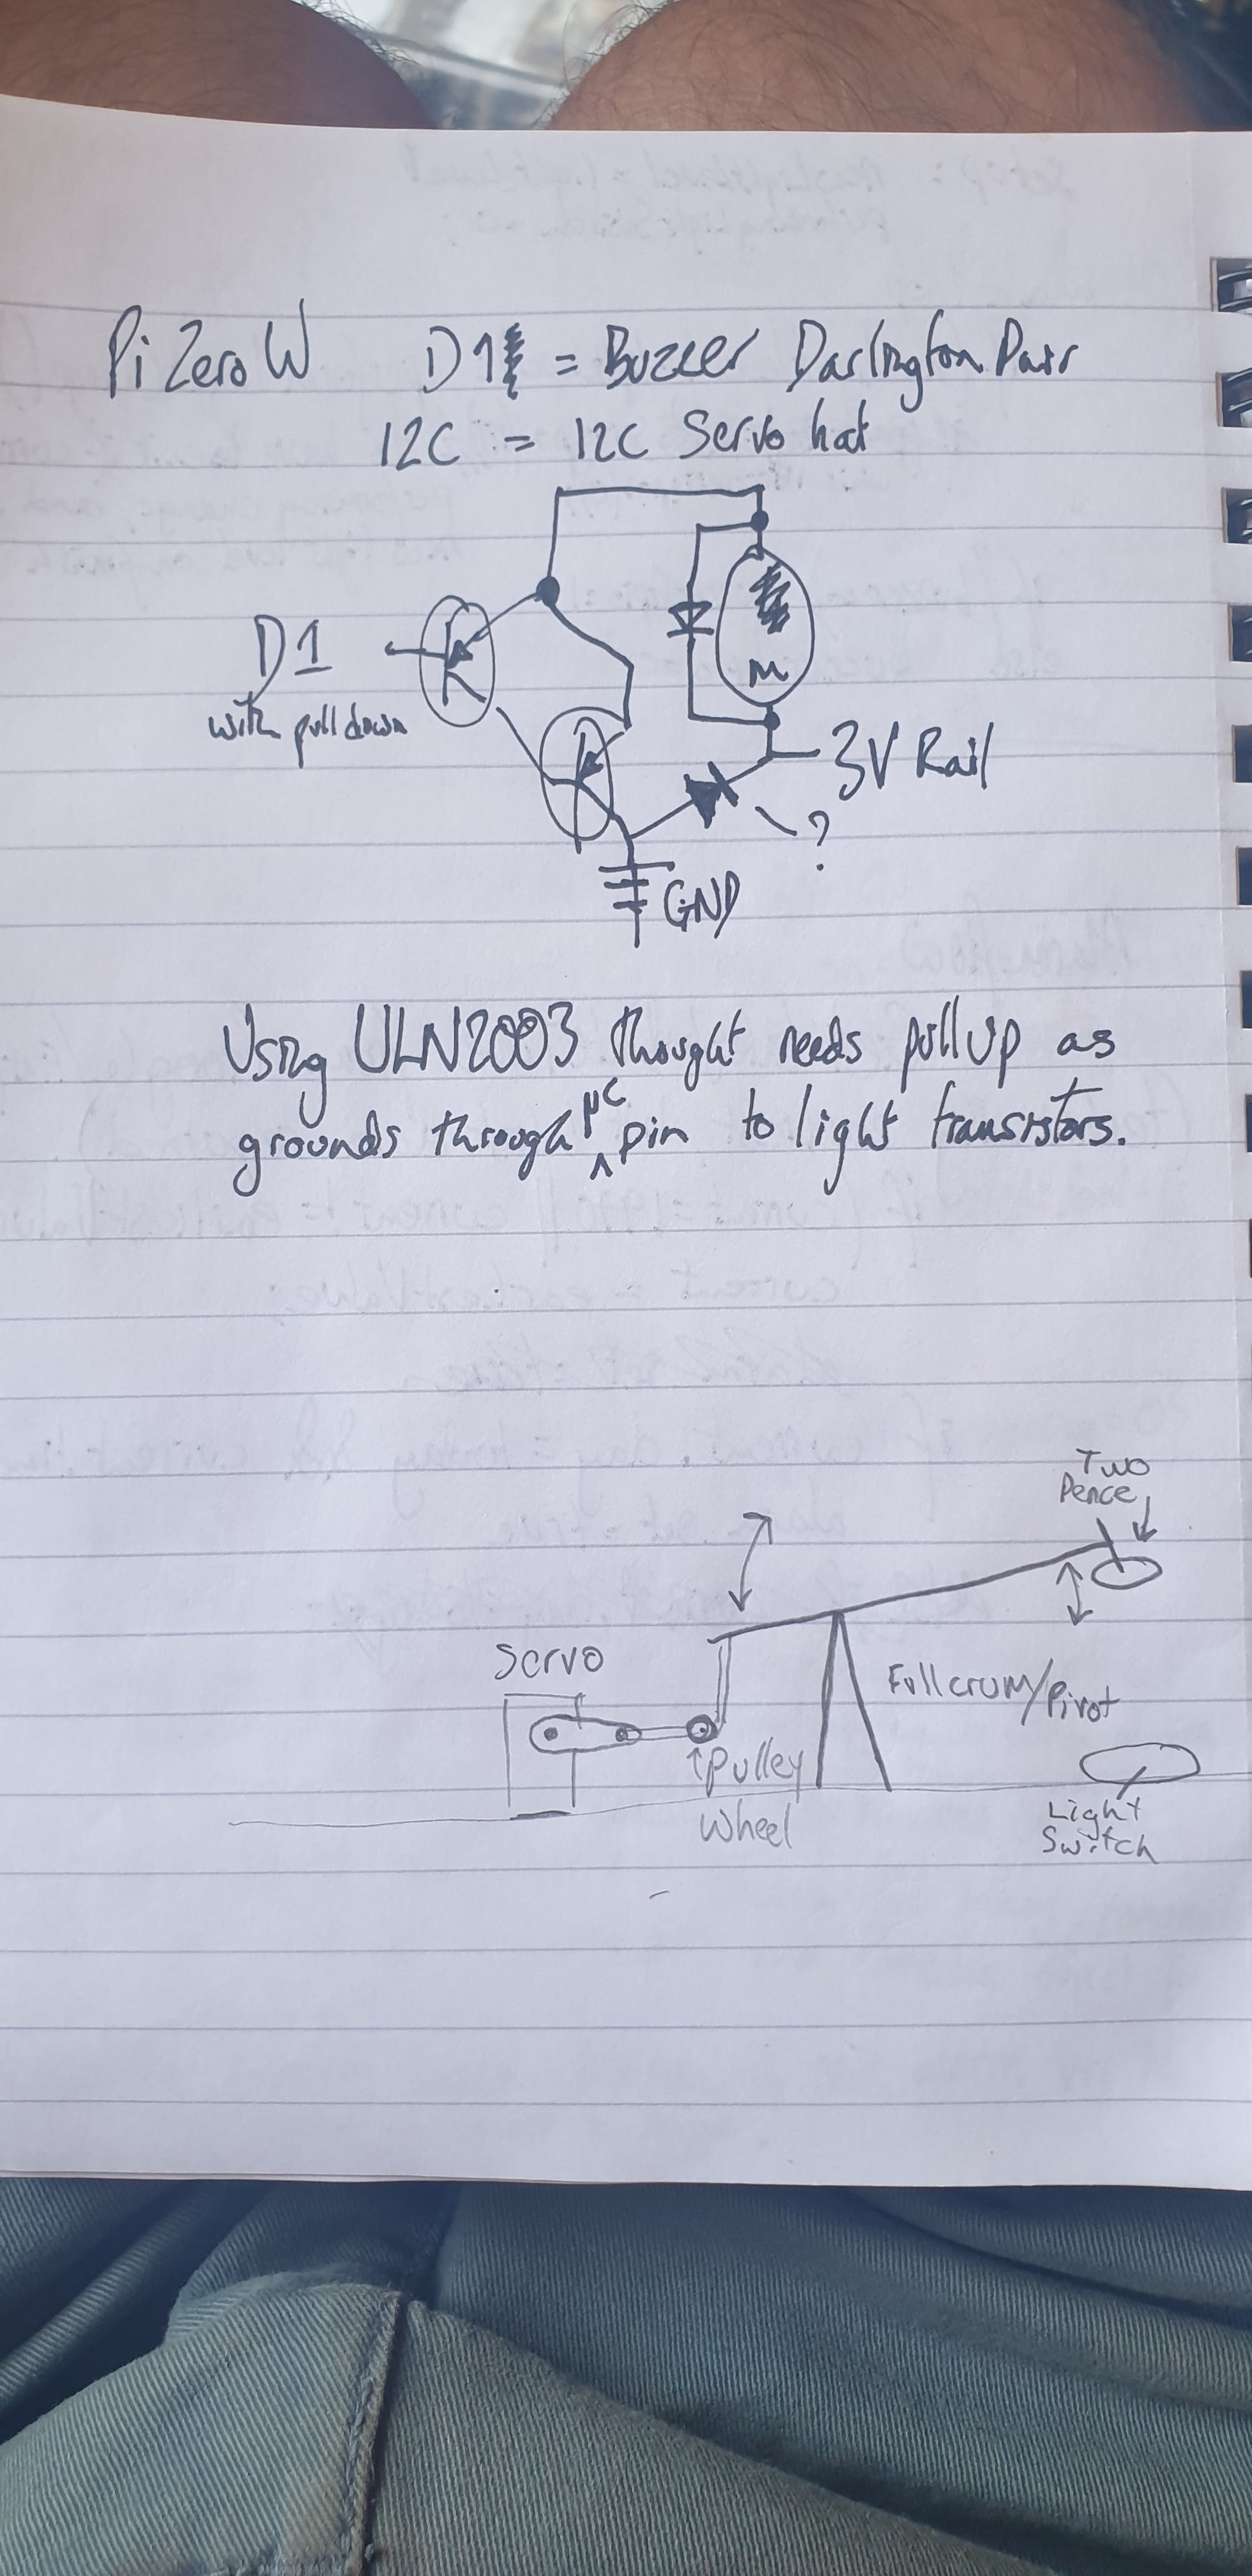 Pi Zero W D1 = Buzzer Darlington Pair
I2C = I2C Servo hat
D1
with pull down
M
3V Rail
?
GND
Using ULN2003 thought needs pull up as
grounds through µC pin to light transistors.
Two
Pence
Servo
Fullcrum/Pivot
Pulley
Wheel
Light
Switch